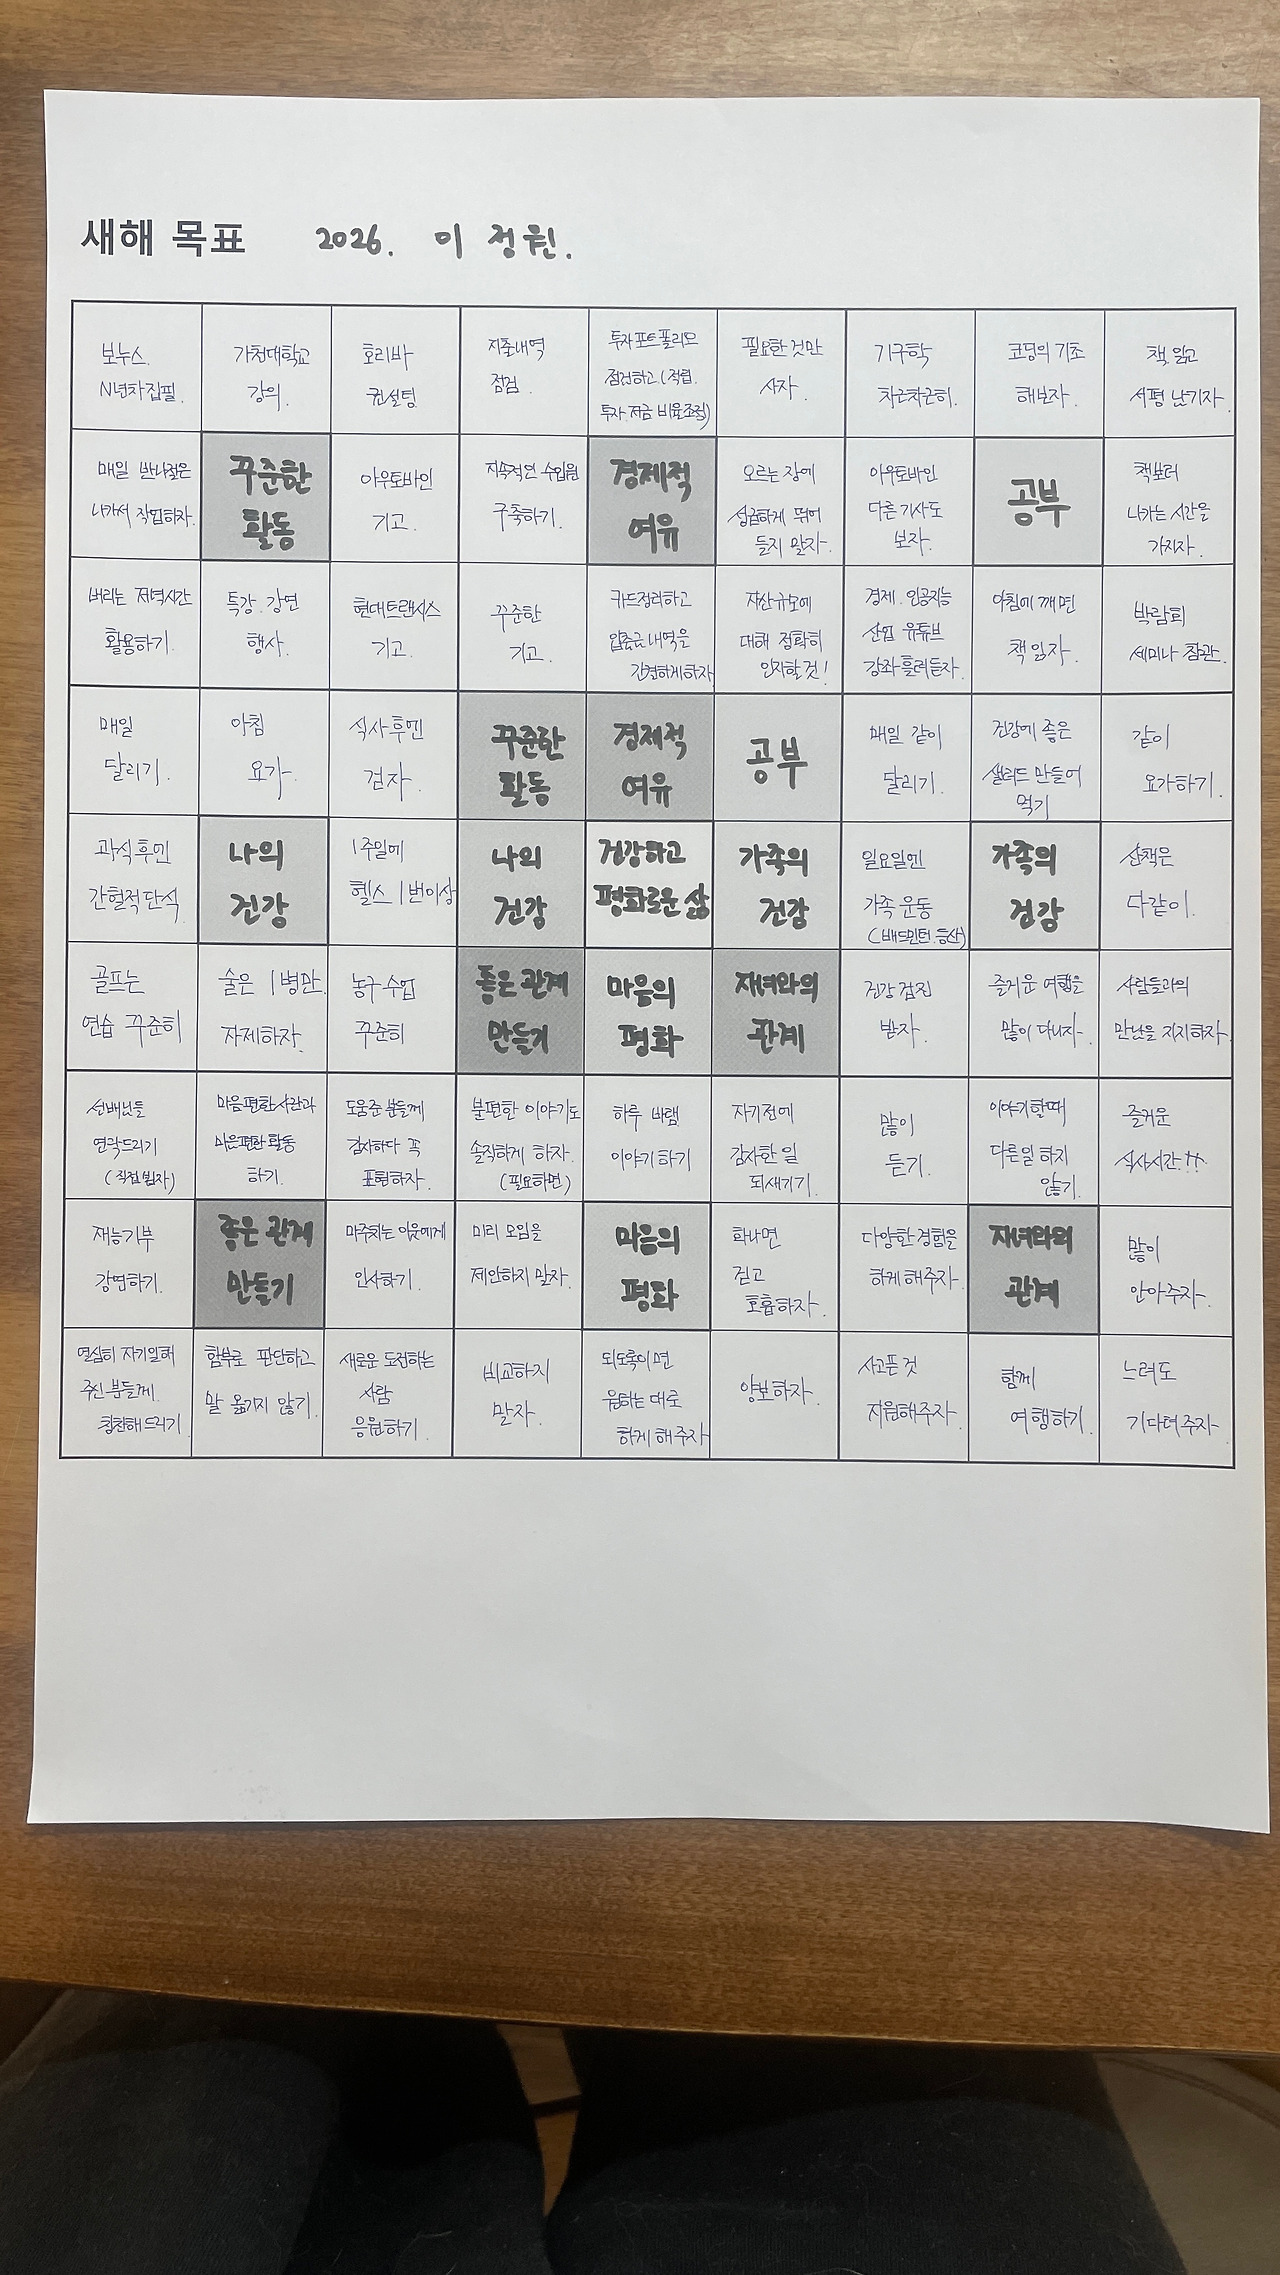 새해 목표 2026. 이 정원.
보누스
N년차 집필.
가천대학교
강의.
호리바
컨설팅
지출내역
점검.
투자포트폴리오
점검하고 (적립.
투자.저금 비율조절)
필요한 것만
사자.
기구학
차근차근히.
코딩의 기초
해보자.
책 읽고
서평 남기자.
매일 반나절은
나가서 작업하자.
꾸준한
활동
아우토바인
기고.
지속적인 수입원
구축하기.
경제적
여유
오르는 장에
성급하게 뛰어
들지 말자.
아우토바인
다른 기사도
보자.
공부
책보러
나가는 시간을
가지자.
버리는 저녁시간
활용하기.
특강. 강연
행사.
현대트랜시스
기고.
꾸준한
기고.
카드정리하고
입출금내역은
간결하게하자
자산규모에
대해 정확히
인지할 것!
경제. 인공지능
산업 유튜브
강좌 흘려듣자.
아침에 깨면
책 읽자.
박람회
세미나 참관.
매일
달리기.
아침
요가.
식사후엔
걷자.
꾸준한
활동
경제적
여유
공부
매일 같이
달리기.
건강에 좋은
샐러드 만들어
먹기
같이
요가하기.
과식후엔
간헐적단식.
나의
건강
1주일에
헬스 1번이상
나의
건강
건강하고
평화로운 삶
가족의
건강
일요일엔
가족 운동
(배드민턴.등산)
가족의
건강
산책은
다같이.
골프는
연습 꾸준히
술은 1병만.
자제하자.
농구 수업
꾸준히
좋은 관계
만들기
마음의
평화
자녀와의
관계
건강검진
받자.
즐거운 여행을
많이 다니자.
사람들과의
만남을 지지하자.
선배님들
연락드리기
(직접 뵙자)
마음편한사람과
마음편한 활동
하기.
도움준 분들께
감사하다 꼭
표현하자.
불편한 이야기도
솔직하게 하자.
(필요하면)
하루 바램
이야기하기
자기전에
감사한 일
되새기기.
많이
듣기.
이야기할때
다른일 하지
않기.
즐거운
식사시간!!.
재능기부
강연하기.
좋은 관계
만들기
마주치는 이웃에게
인사하기.
미리 모임을
제안하지 말자.
마음의
평화
화나면
걷고
호흡하자.
다양한 경험을
하게 해주자.
자녀와의
관계
많이
안아주자.
열심히 자기일해
주신 분들께.
칭찬해드리기.
함부로 판단하고
말 옮기지 않기.
새로운 도전하는
사람
응원하기.
비교하지
말자.
되도록이면
원하는 대로
하게 해주자
양보하자.
사고픈 것
지원해주자.
함께
여행하기.
느려도
기다려주자.